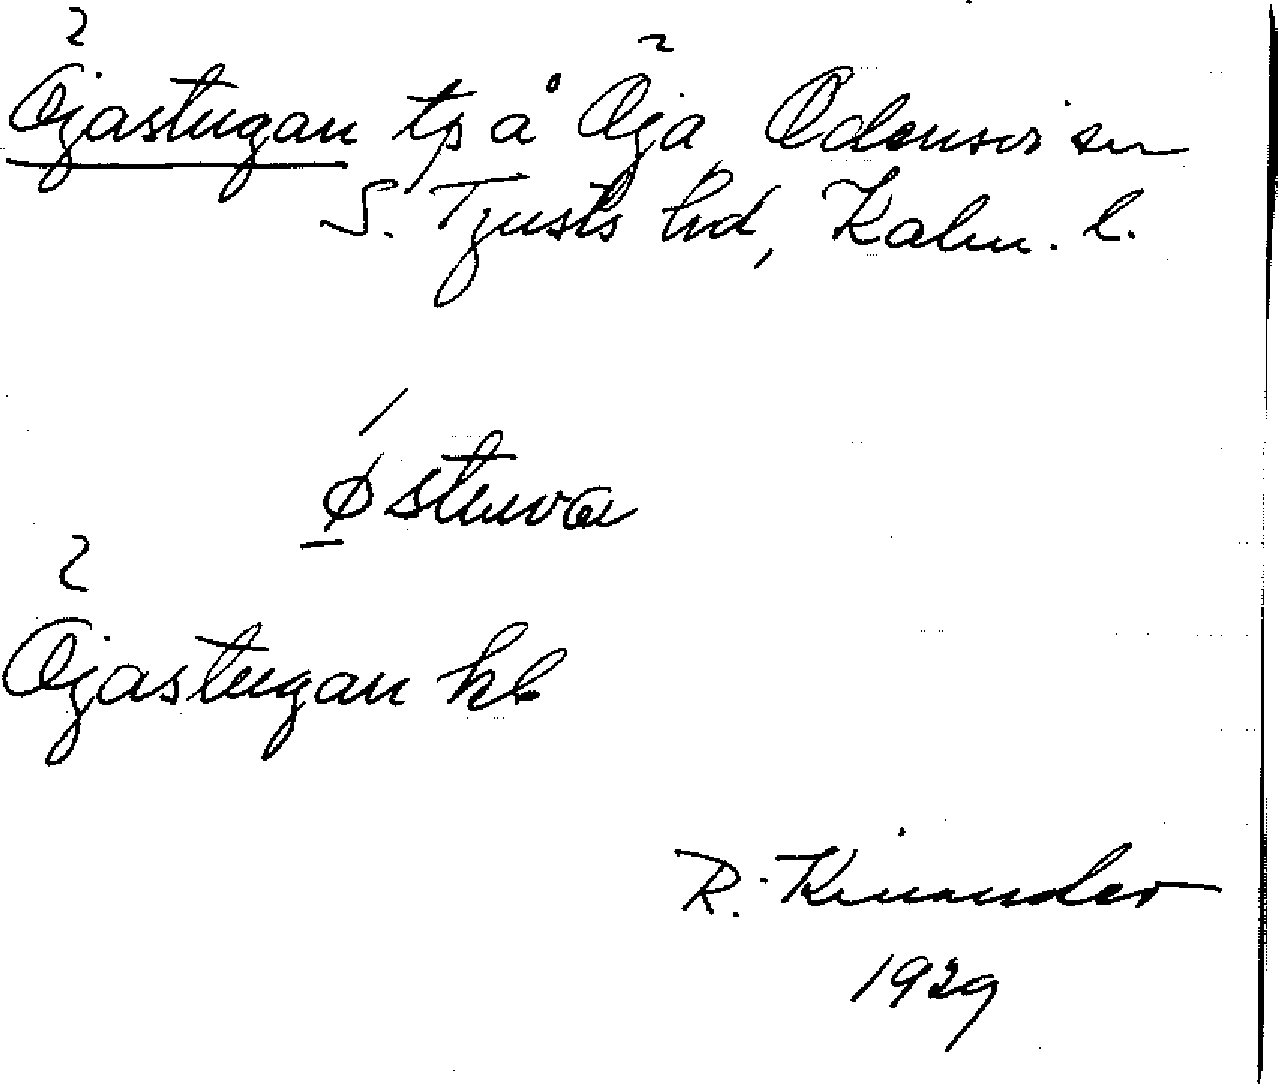 Öjastugan tp å Öja Odensvi sn
S. Tjusts hd, Kalm. l.
østuvα
Öjastugan kb
R. Kinander
1929